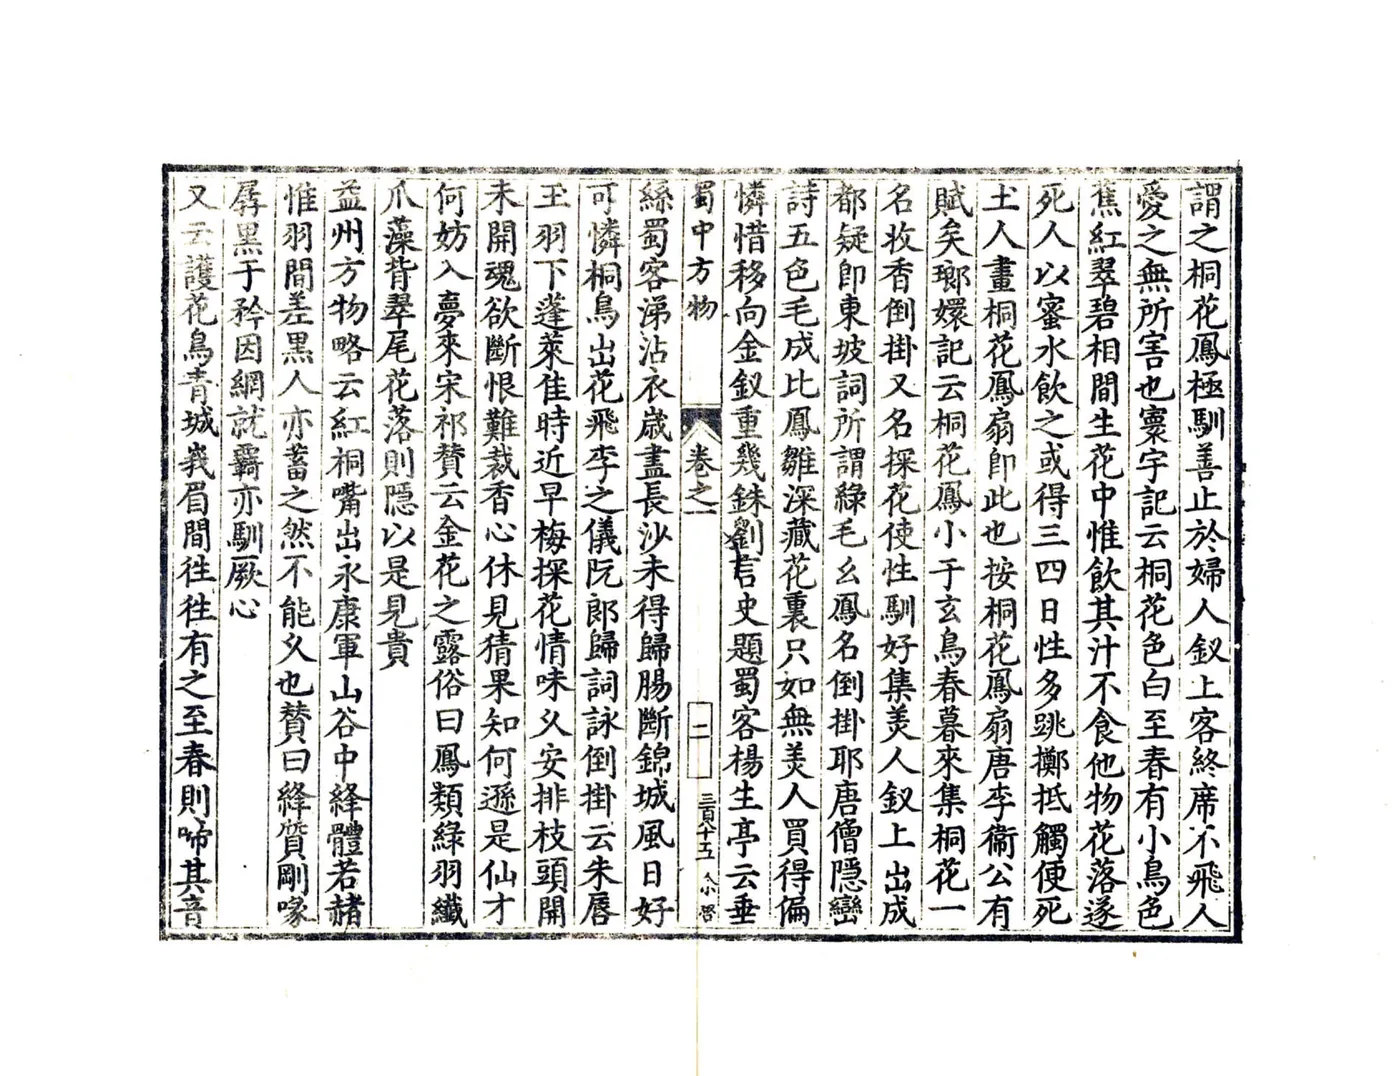 謂之桐花鳳極馴善止於婦人釵上客終席不飛人
愛之無所害也寰宇記云桐花色白至春有小鳥色
蕉紅翠碧相間生花中惟飲其汁不食他物花落遂
死人以蜜水飲之或得三四日性多跳擲抵觸便死
土人畫桐花鳳扇卽此也按桐花鳳扇唐李衞公有
賦矣瑯嬛記云桐花鳳小于玄鳥春暮來集桐花一
名收香倒掛又名探花使性馴好集美人釵上出成
都疑卽東坡詞所謂綠毛幺鳳名倒掛耶唐僧隱巒
詩五色毛成比鳳雛深藏花裏只如無美人買得偏
憐惜移向金釵重幾銖劉言史題蜀客楊生亭云垂
蜀中方物
卷之一
二
三百十五
絲蜀客涕沾衣歲盡長沙未得歸腸斷錦城風日好
可憐桐鳥出花飛李之儀阮郎歸詞詠倒掛云朱唇
玉羽下蓬萊佳時近早梅探花情味久安排枝頭開
未開魂欲斷恨難裁香心休見猜果知何遜是仙才
何妨入夢來宋祁贊云金花之露俗曰鳳類綠羽纖
爪藻背翠尾花落則隱以是見貴
益州方物略云紅桐嘴出永康軍山谷中絳體若赭
惟羽間差黑人亦蓄之然不能久也贊曰絳質剛喙
孱黑于矜因網就羈亦馴厥心
又云護花鳥青城峩眉間往往有之至春則啼其音